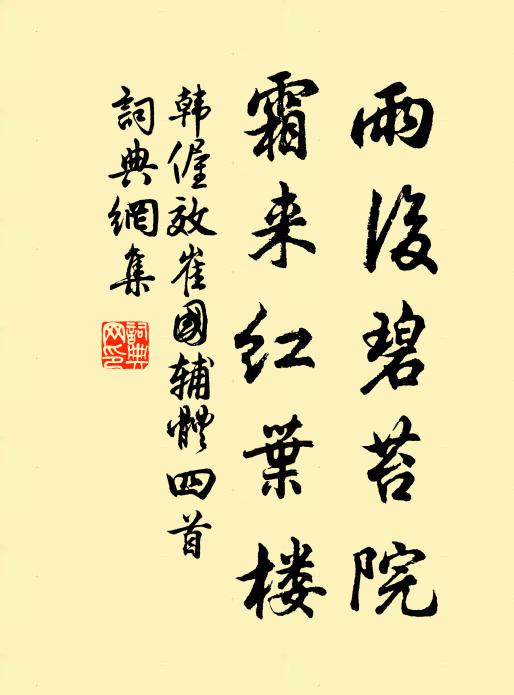 雨後碧苔院
霜来红葉楼
韩偓效崔國辅體四首
詞典網集
詞典網印